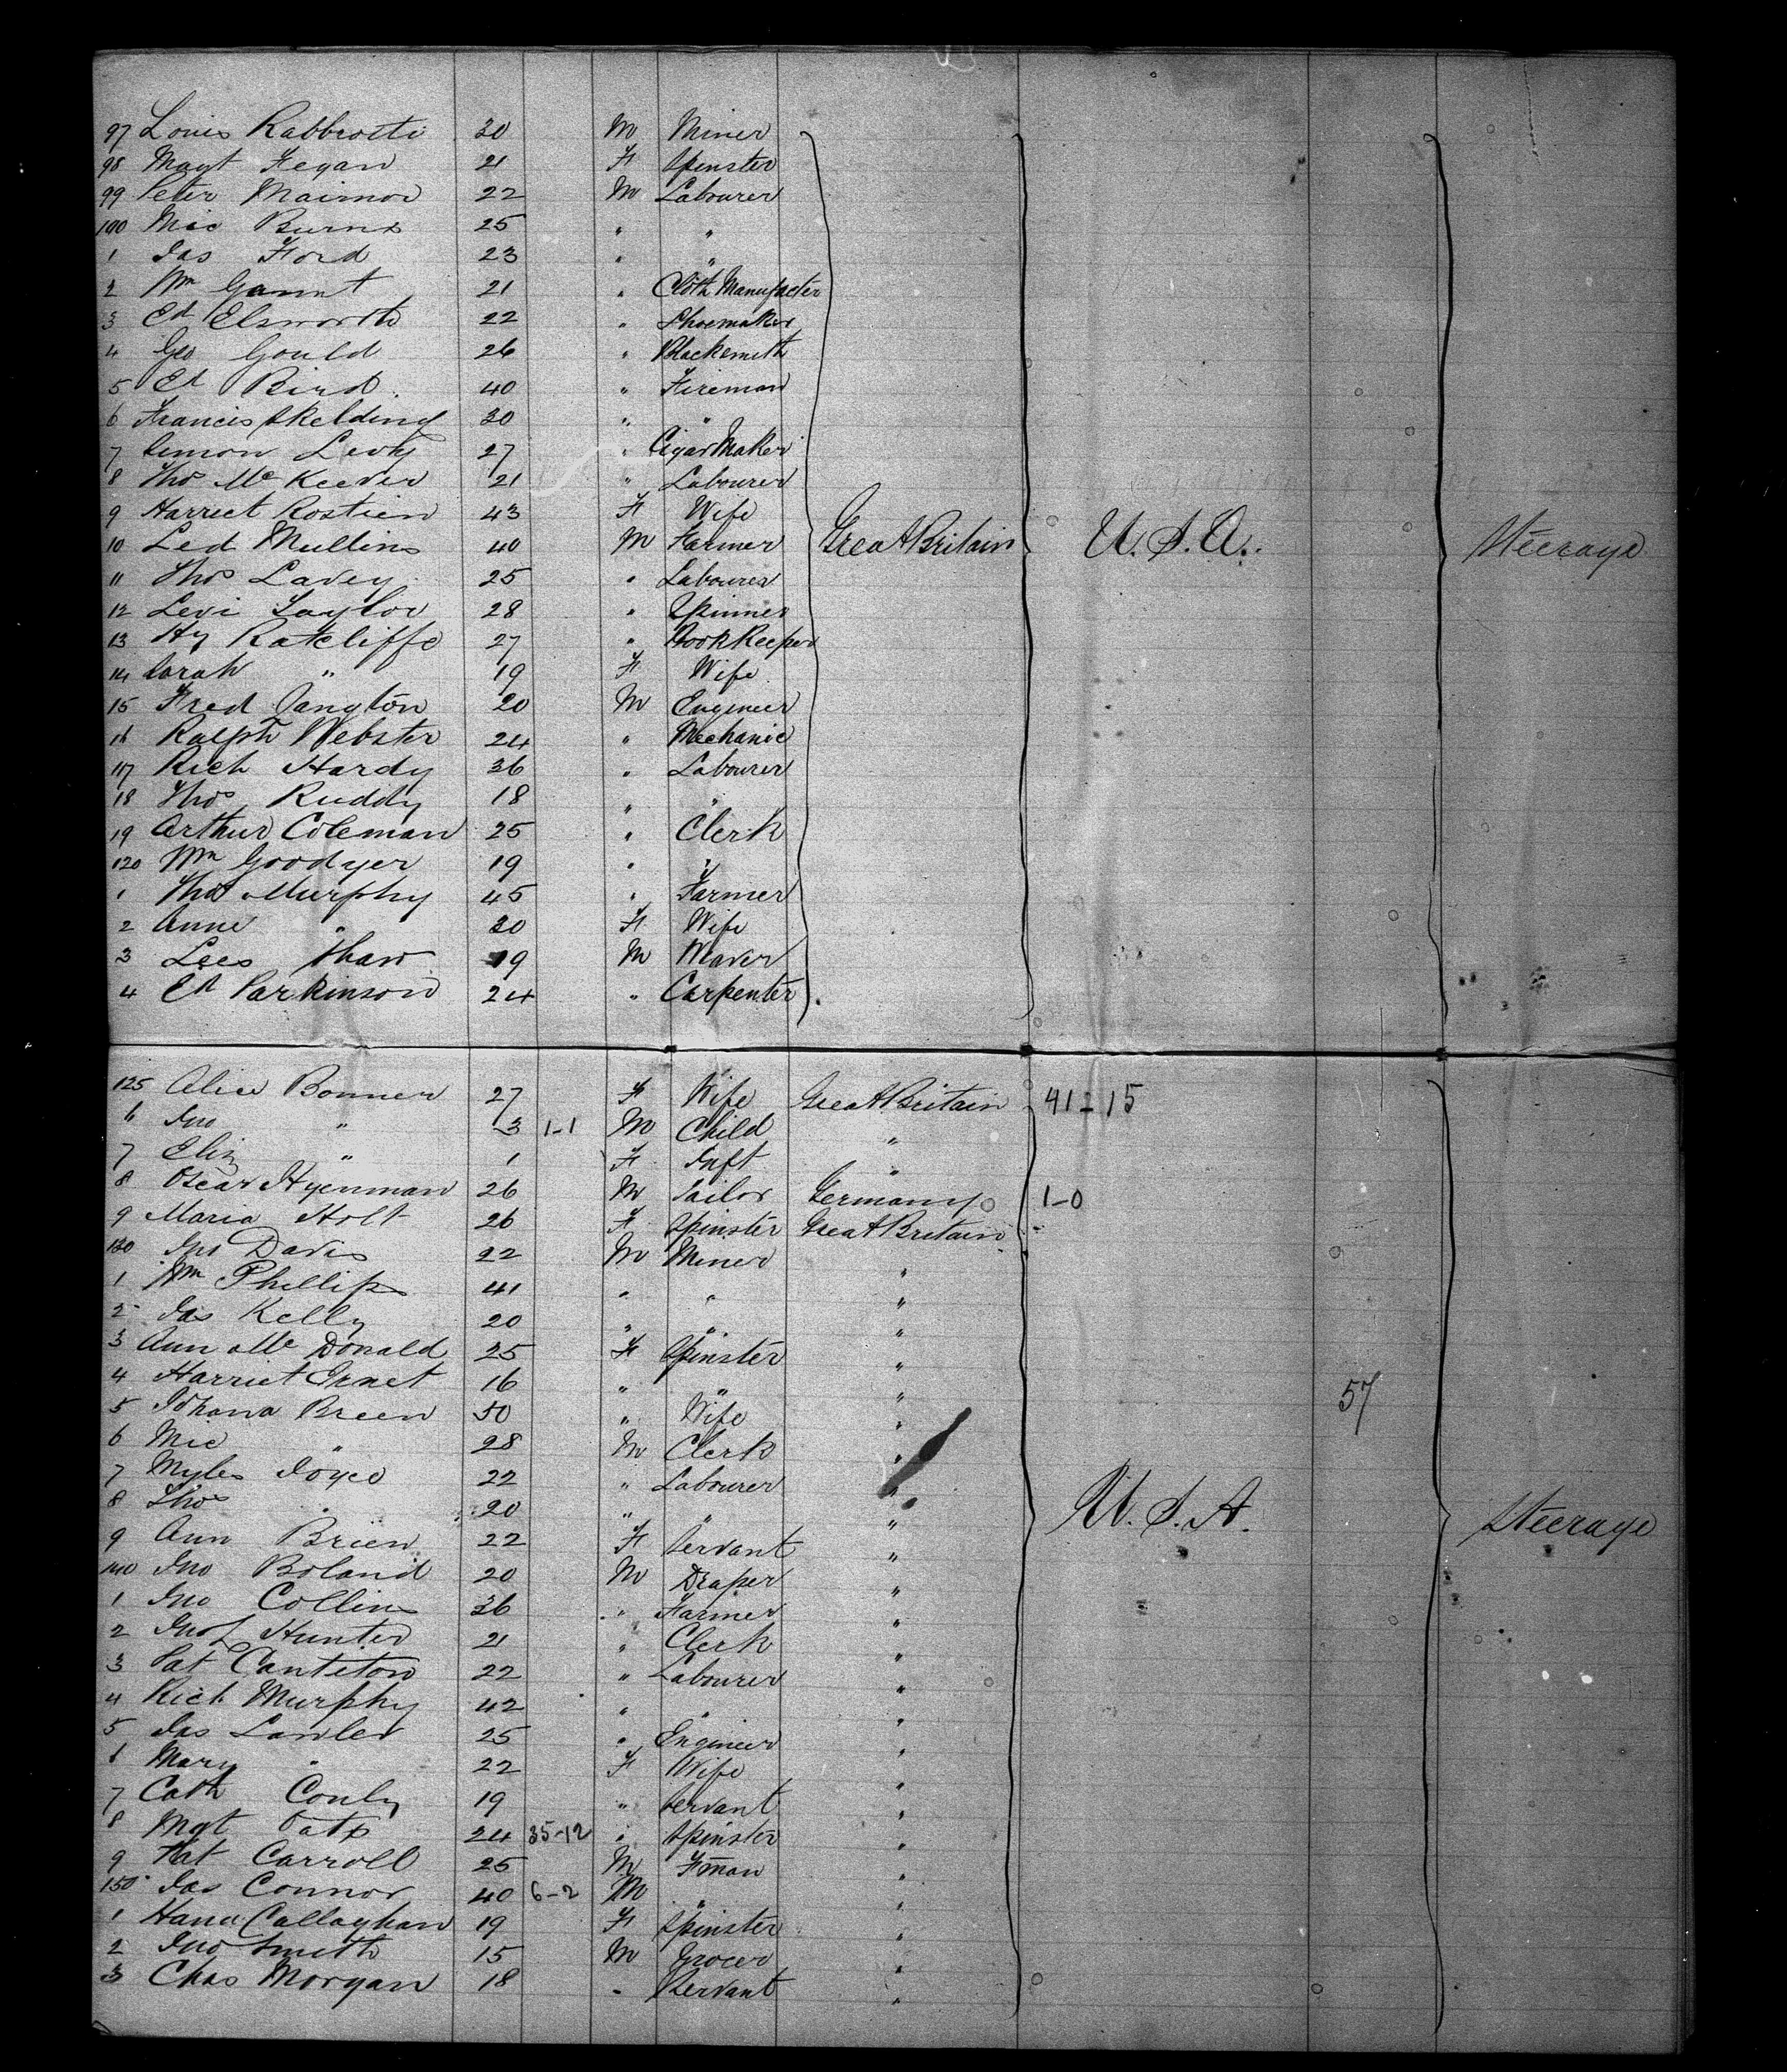 97 Louis Rabbrosti 30 M Miner
98 Magt Fegan 21 F Spinster
99 Peter Mairnor 22 M Labourer
100 Mic Burns 25 " "
1 Jas Ford 23 " "
2 Wm Gaunt 21 " Cloth Manufacter
3 Ed Elsworth 22 " Shoemaker
4 Geo Gould 26 " Blacksmith
5 Ed Bird 40 " Fireman
6 Francis Skelding 30 " "
7 Simon Levy 27 " Cigar Maker
8 Thos McKeever 21 " Labourer
9 Harriet Rostien 43 F Wife
10 Led Mullins 40 M Farmer Great Britain U.S.A. Steerage
11 Thos Lavey 25 " Labourer
12 Levi Taylor 28 " Spinner
13 Hy Ratcliffe 27 " Book Keeper
14 Sarah " 19 F Wife
15 Fred Langton 20 M Engineer
16 Ralph Webster 24 " Mechanic
117 Rich Hardy 36 " Labourer
18 Thos Ruddy 18 " "
19 Arthur Coleman 25 " Clerk
120 Wm Goodyer 19 " "
1 Thos Murphy 45 " Farmer
2 Anne " 30 F Wife
3 Lees Shaw 19 M Weaver
4 Ed Parkinson 24 " Carpenter
125 Alice Bonner 27 F Wife Great Britain 41-15
6 Jno " 3 1-1 M Child "
7 Eliz " 1 F Inft "
8 Oscar Hyenman 26 M Tailor Germany 1-0
9 Maria Holt 26 F Spinster Great Britain
130 Jno Davis 22 M Miner "
1 Wm Phillips 41 " " "
2 Jas Kelly 20 " " "
3 Ann McDonald 25 F Spinster "
4 Harriet 16 " " "
57
5 Johana Breen 50 " Wife "
6 Mic " 28 M Clerk "
7 Myles Joyce 22 " Labourer "
8 Thos " 20 " " "
U.S.A. Steerage
9 Ann Brien 22 F Servant "
140 Jno Boland 20 M Draper "
1 Jno Collins 36 " Farmer "
2 Jno Hunter 21 " Clerk "
3 Pat Cantelon 22 " Labourer "
4 Rich Murphy 42 " " "
5 Jas Lawler 25 " Engineer "
6 Mary " 22 F Wife "
7 Cath Conly 19 " Servant "
8 Mgt 24 35-12 " Spinster "
9 Pat Carroll 25 M Fman "
150 Jas Connor 40 6-2 M " "
1 Hana Callaghan 19 F Spinster "
2 Jno Smith 15 M Grocer "
3 Chas Morgan 18 " Servant "